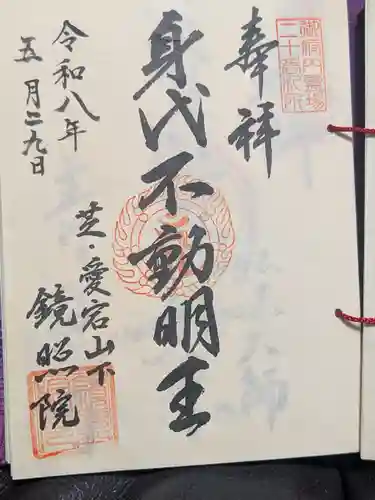 奉拝
身代不動明王
令和八年
五月二九日
芝・愛宕山下
鏡照院